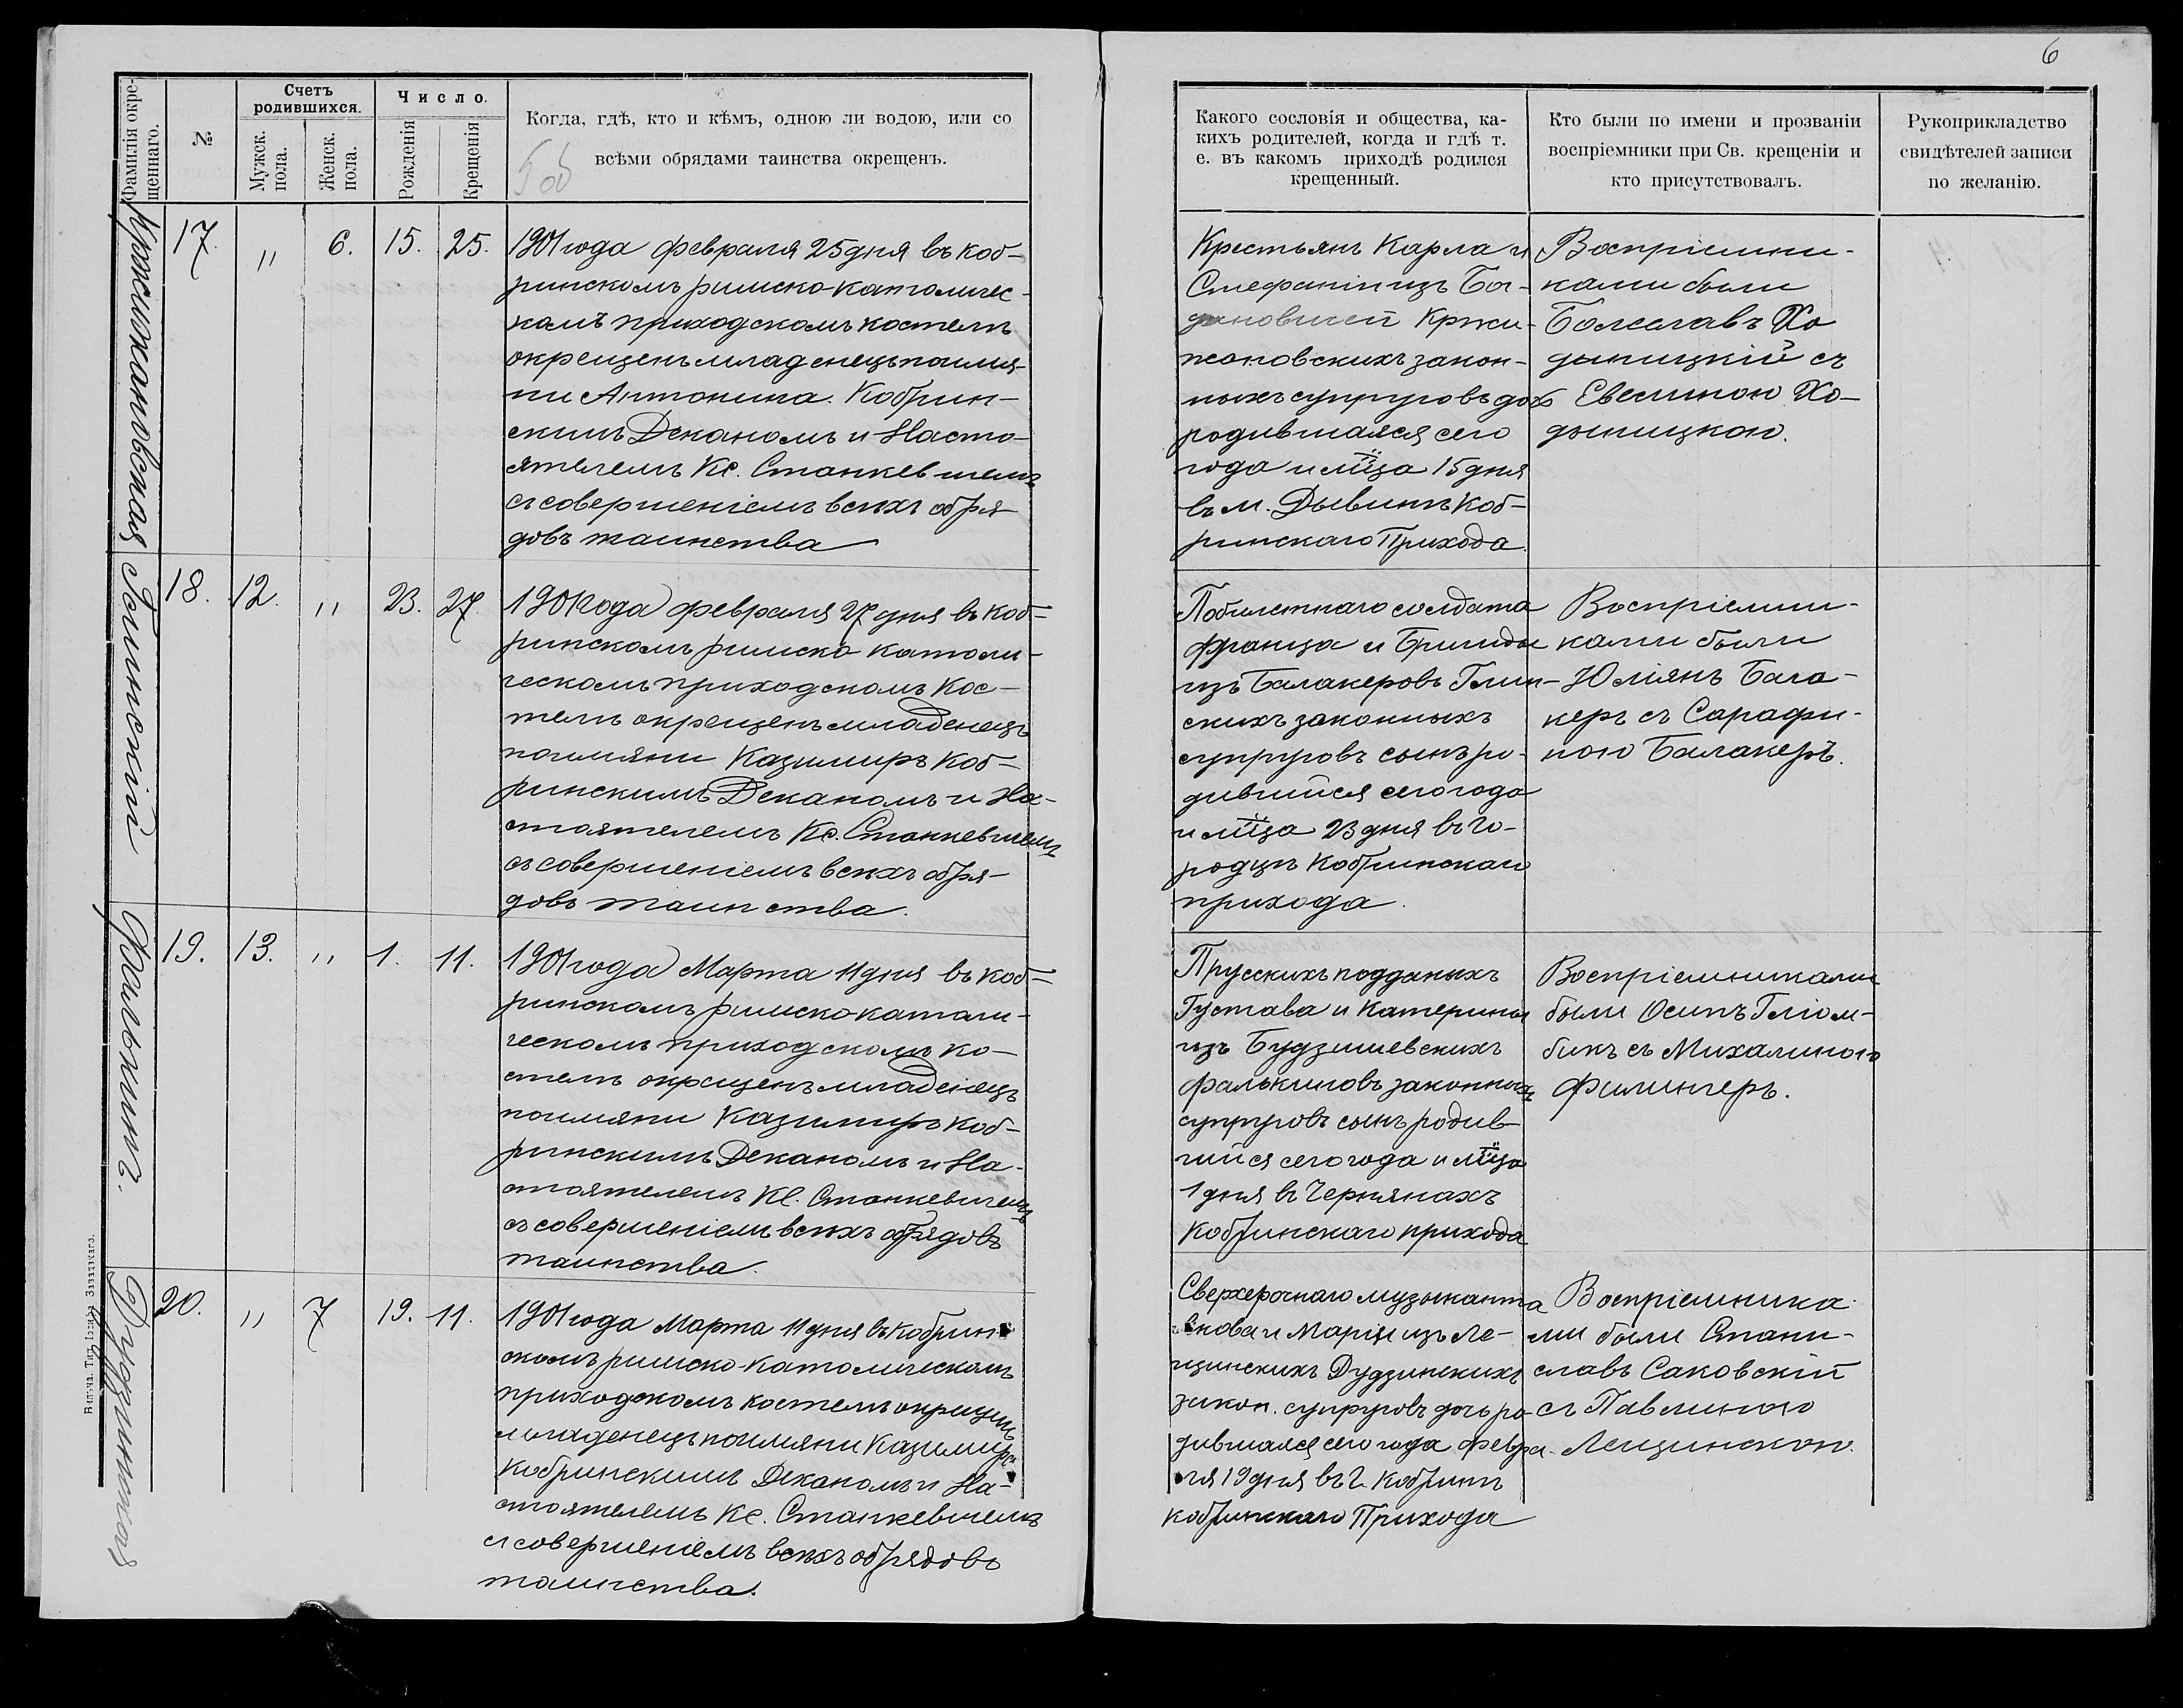 6
Фамилія окре-
щеннаго.
№
Счетъ
родившихся.
Мужск.
пола.
Женск.
пола.
Число.
Рожденія
Крещенія
Когда, гдѣ, кто и кѣмъ, одною ли водою, или со
всѣми обрядами таинства окрещенъ.
Какого сословія и общества, ка-
кихъ родителей, когда и гдѣ т.
е. въ какомъ приходѣ родился
крещенный.
Кто были по имени и прозваніи
воспріемники при Св. крещеніи и
кто присутствовалъ.
Рукоприкладство
свидѣтелей записи
по желанію.
Кржижановская
17. " 6. 15. 25.
1901 года февраля 25 дня въ Коб-
ринскомъ римско-католичес-
комъ приходскомъ костелѣ
окрещенъ младенецъ по имя-
ни Антонина. Кобрин-
скимъ Деканомъ и Насто-
ятелемъ Кс. Станкевичемъ
съ совершеніемъ всѣхъ обря-
довъ таинства
Крестьянъ Карла и
Стефаніи изъ
Кржи-
жановскихъ закон-
ныхъ супруговъ дочь
родившаяся сего
года и мц̃а 15 дня
въ м. Дывинѣ Коб-
ринскаго Прихода.
Воспріемни-
ками были
Болеславъ Хо
дыницкій съ
Евелиною Хо-
дыницкою.
Глинскій
18. 12. " 23. 27.
1901 года февраля 27 дня въ Коб-
ринскомъ римско католи-
ческомъ приходскомъ Кос-
телѣ окрещенъ младенецъ
по имяни Казимиръ Коб-
ринскимъ Деканомъ и На-
стоятелемъ Кс. Станкевичемъ
съ совершеніемъ всѣхъ обря-
довъ таинства.
Побилетнаго солдата
Франца и Бригиды
изъ Балакеровъ Глин-
скихъ законныхъ
супруговъ сынъ ро-
дившійся сего года
и мц̃а 23 дня въ Го-
родцѣ Кобринскаго
прихода.
Воспріемни-
ками были
Юліянъ Бала-
керъ съ Сарафи-
ною Балакеръ.
Фалькинъ.
19. 13. " 1. 11.
1901 года Марта 11 дня въ Коб-
ринскомъ римско-катали-
ческомъ приходскомъ ко-
стелѣ окрещенъ младенецъ
по имяни Казимиръ Коб-
ринскимъ Деканомъ и На-
стоятелемъ Кс. Станкевичемъ
съ совершеніемъ всѣхъ обрядовъ
таинства.
Прусскихъ подданыхъ
Густава и Катерины
изъ Будзишевскихъ
Фалькиновъ законныхъ
супруговъ сынъ родив
шійся сего года и мц̃а
1 дня въ Чернянахъ
Кобринскаго прихода
Воспріемниками
были Осипъ Гліом-
бикъ съ Михалиною
Филингеръ.
Дудзинская
20. " 7 19. 11.
1901 года Марта 11 дня въ Кобрин
скомъ римско-католическомъ
приходскомъ костелѣ окрещенъ
младенецъ по имяни Казимира
Кобринскимъ Деканомъ и На-
стоятелемъ Кс. Станкевичемъ
съ совершеніемъ всѣхъ обрядовъ
таинства.
Сверхсрочнаго музыканта
и Маріи изъ Ле-
щинскихъ Дудзинскихъ
закон. супруговъ дочь ро-
дившаяся сего года февра-
ля 19 дня въ г. Кобринѣ
Кобринскаго Прихода
Воспріемника
ми были Стани-
славъ Саковскій
съ Павлиною
Лещинскою.